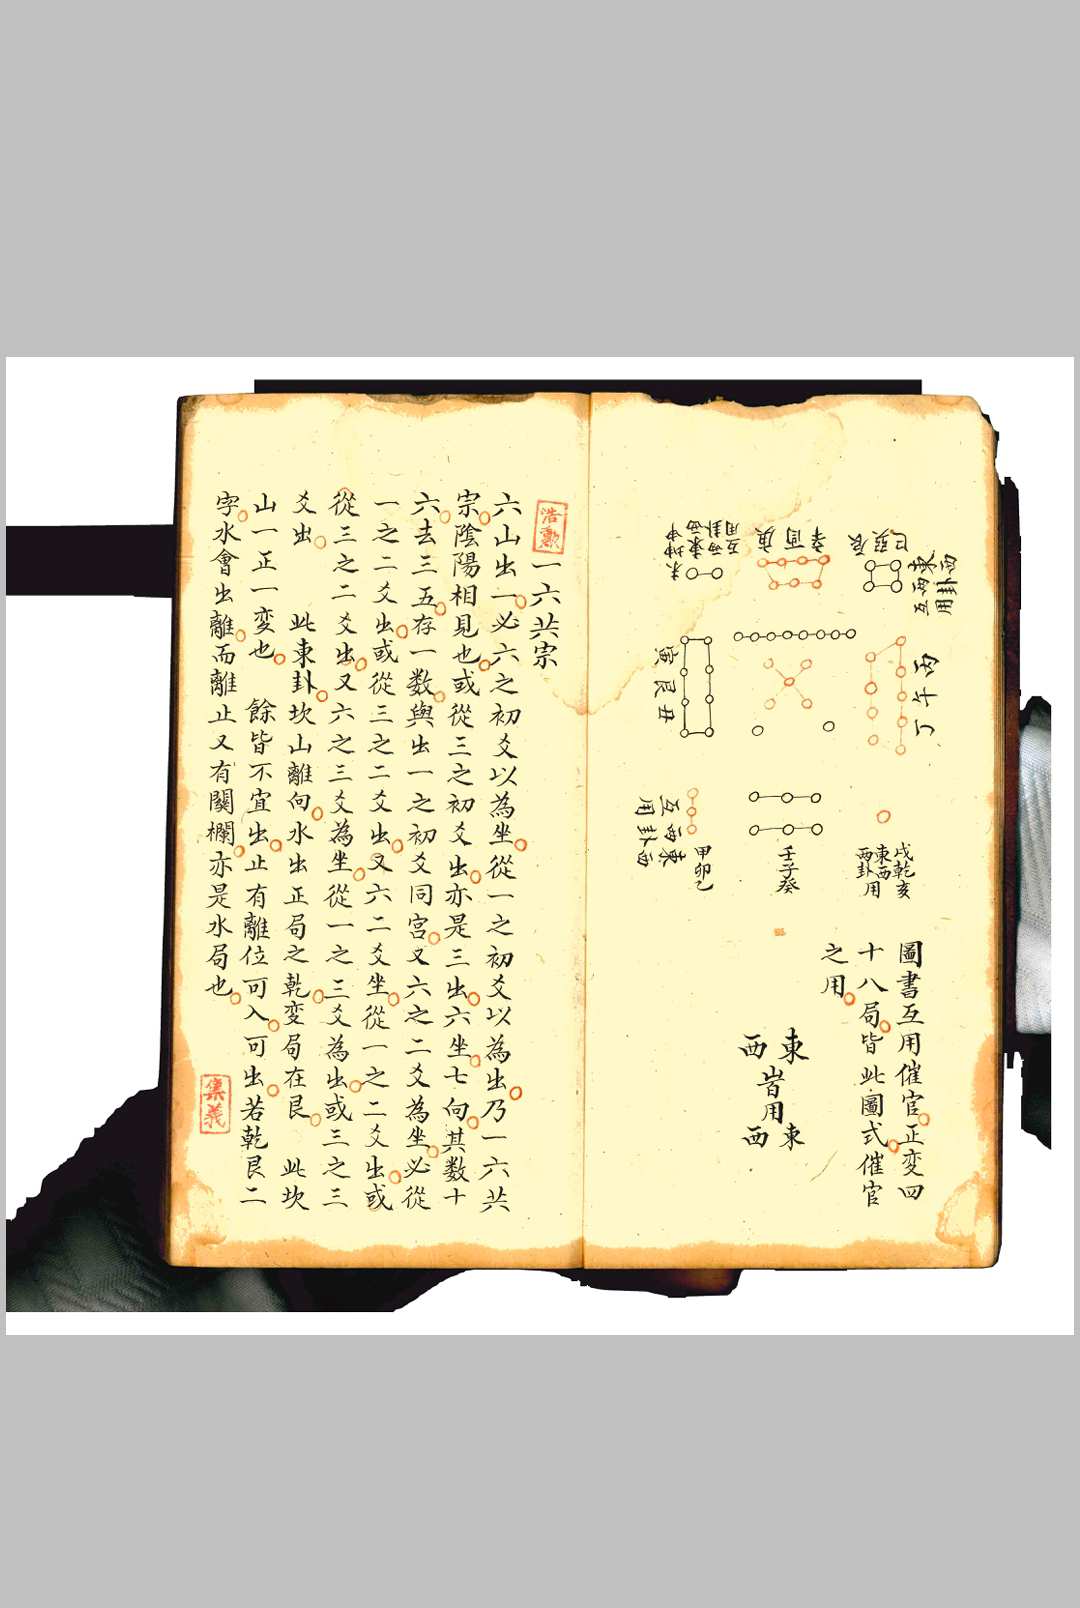 巳巽辰
東西互
西卦用
辛酉庚
未坤申
西東卦西互用
丙午丁
寅艮丑
戌乾亥
東西
西卦用
壬子癸
甲卯乙
東西互
西卦用
圖書互用催官正変四
十八局皆此圖式催官
之用
東 西
皆用
東 西
浩勲
一六共宗
六山出一必六之初爻以為坐從一之初爻以為出乃一六共
宗陰陽相見也或從三之初爻出亦是三出六坐七向其数十
六去三五存一数與出一之初爻同宮又六之二爻為坐必從
一之二爻出或從三之二爻出又六二爻坐從一之二爻出或
從三之二爻出又六之三爻為坐從一之三爻為出或三之三
爻出 此東卦坎山離向水出正局之乾変局在艮 此坎
山一正一変也 餘皆不宜出止有離位可入可出若乾艮二
字水會出離而離止又有關欄亦是水局也
集義